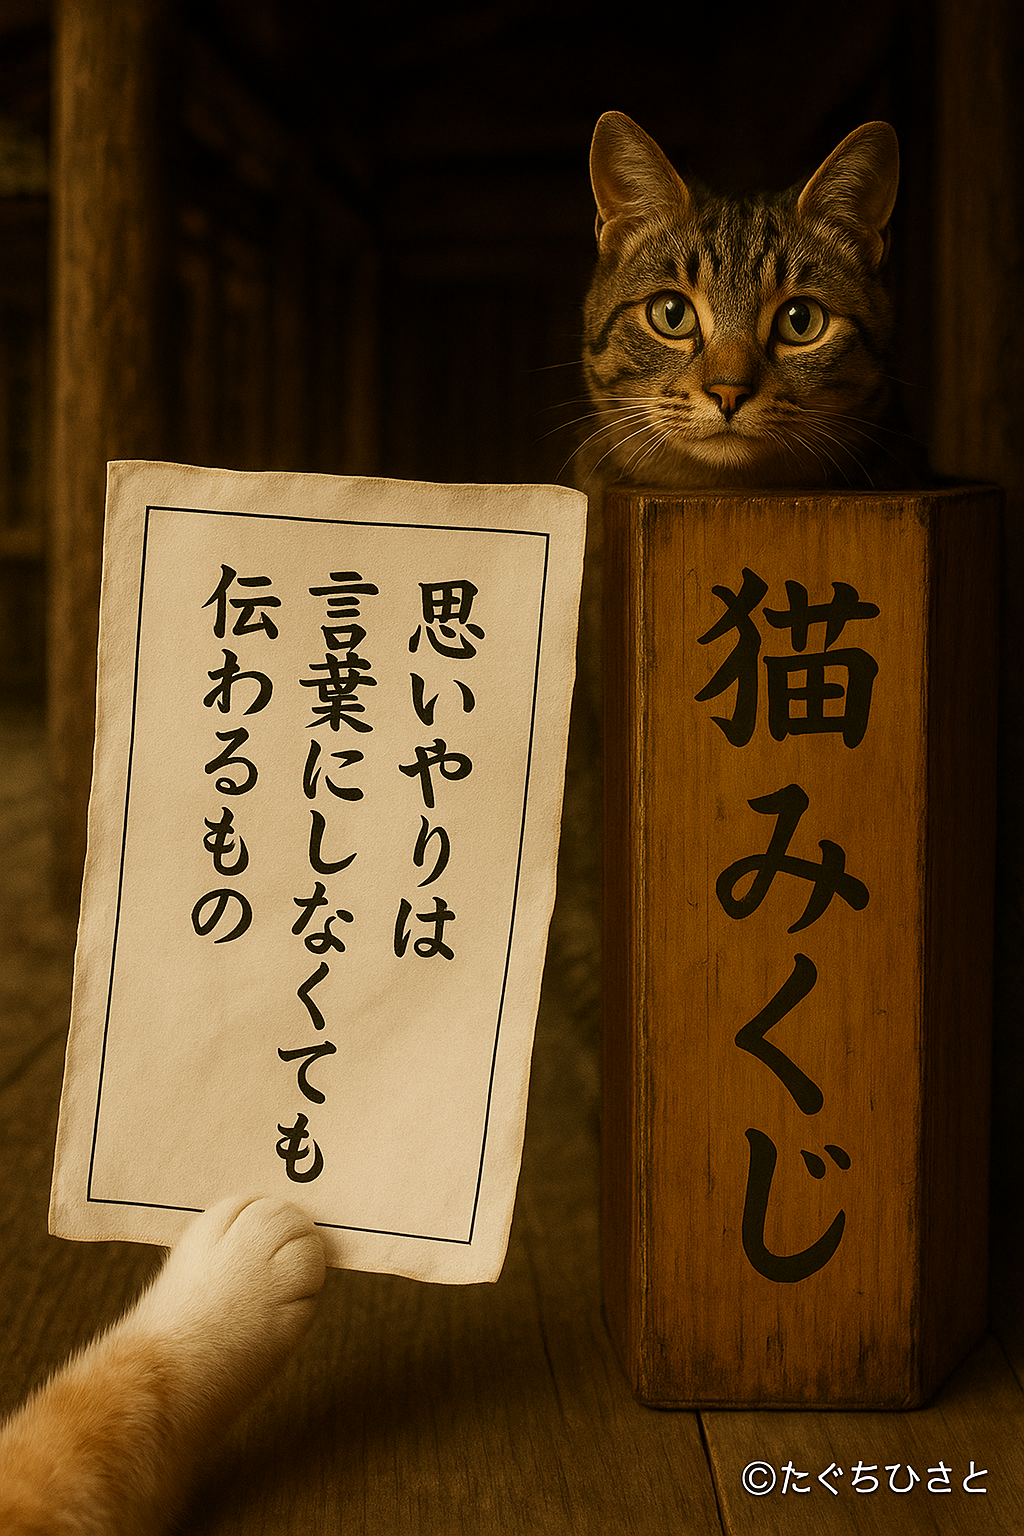 思いやりは
言葉にしなくても
伝わるもの
猫みくじ
©たぐちひさと